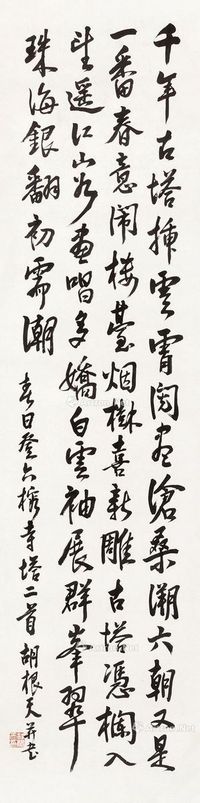 千年古塔插雲霄閱盡滄桑溯六朝又是
一番春意闹楼臺烟樹喜新雕古塔憑欄入
望遥江山如畫唱多嬌白雲袖展群峯翠
珠海銀翻初霽潮 春日登六榕寺塔二首 胡根天并書